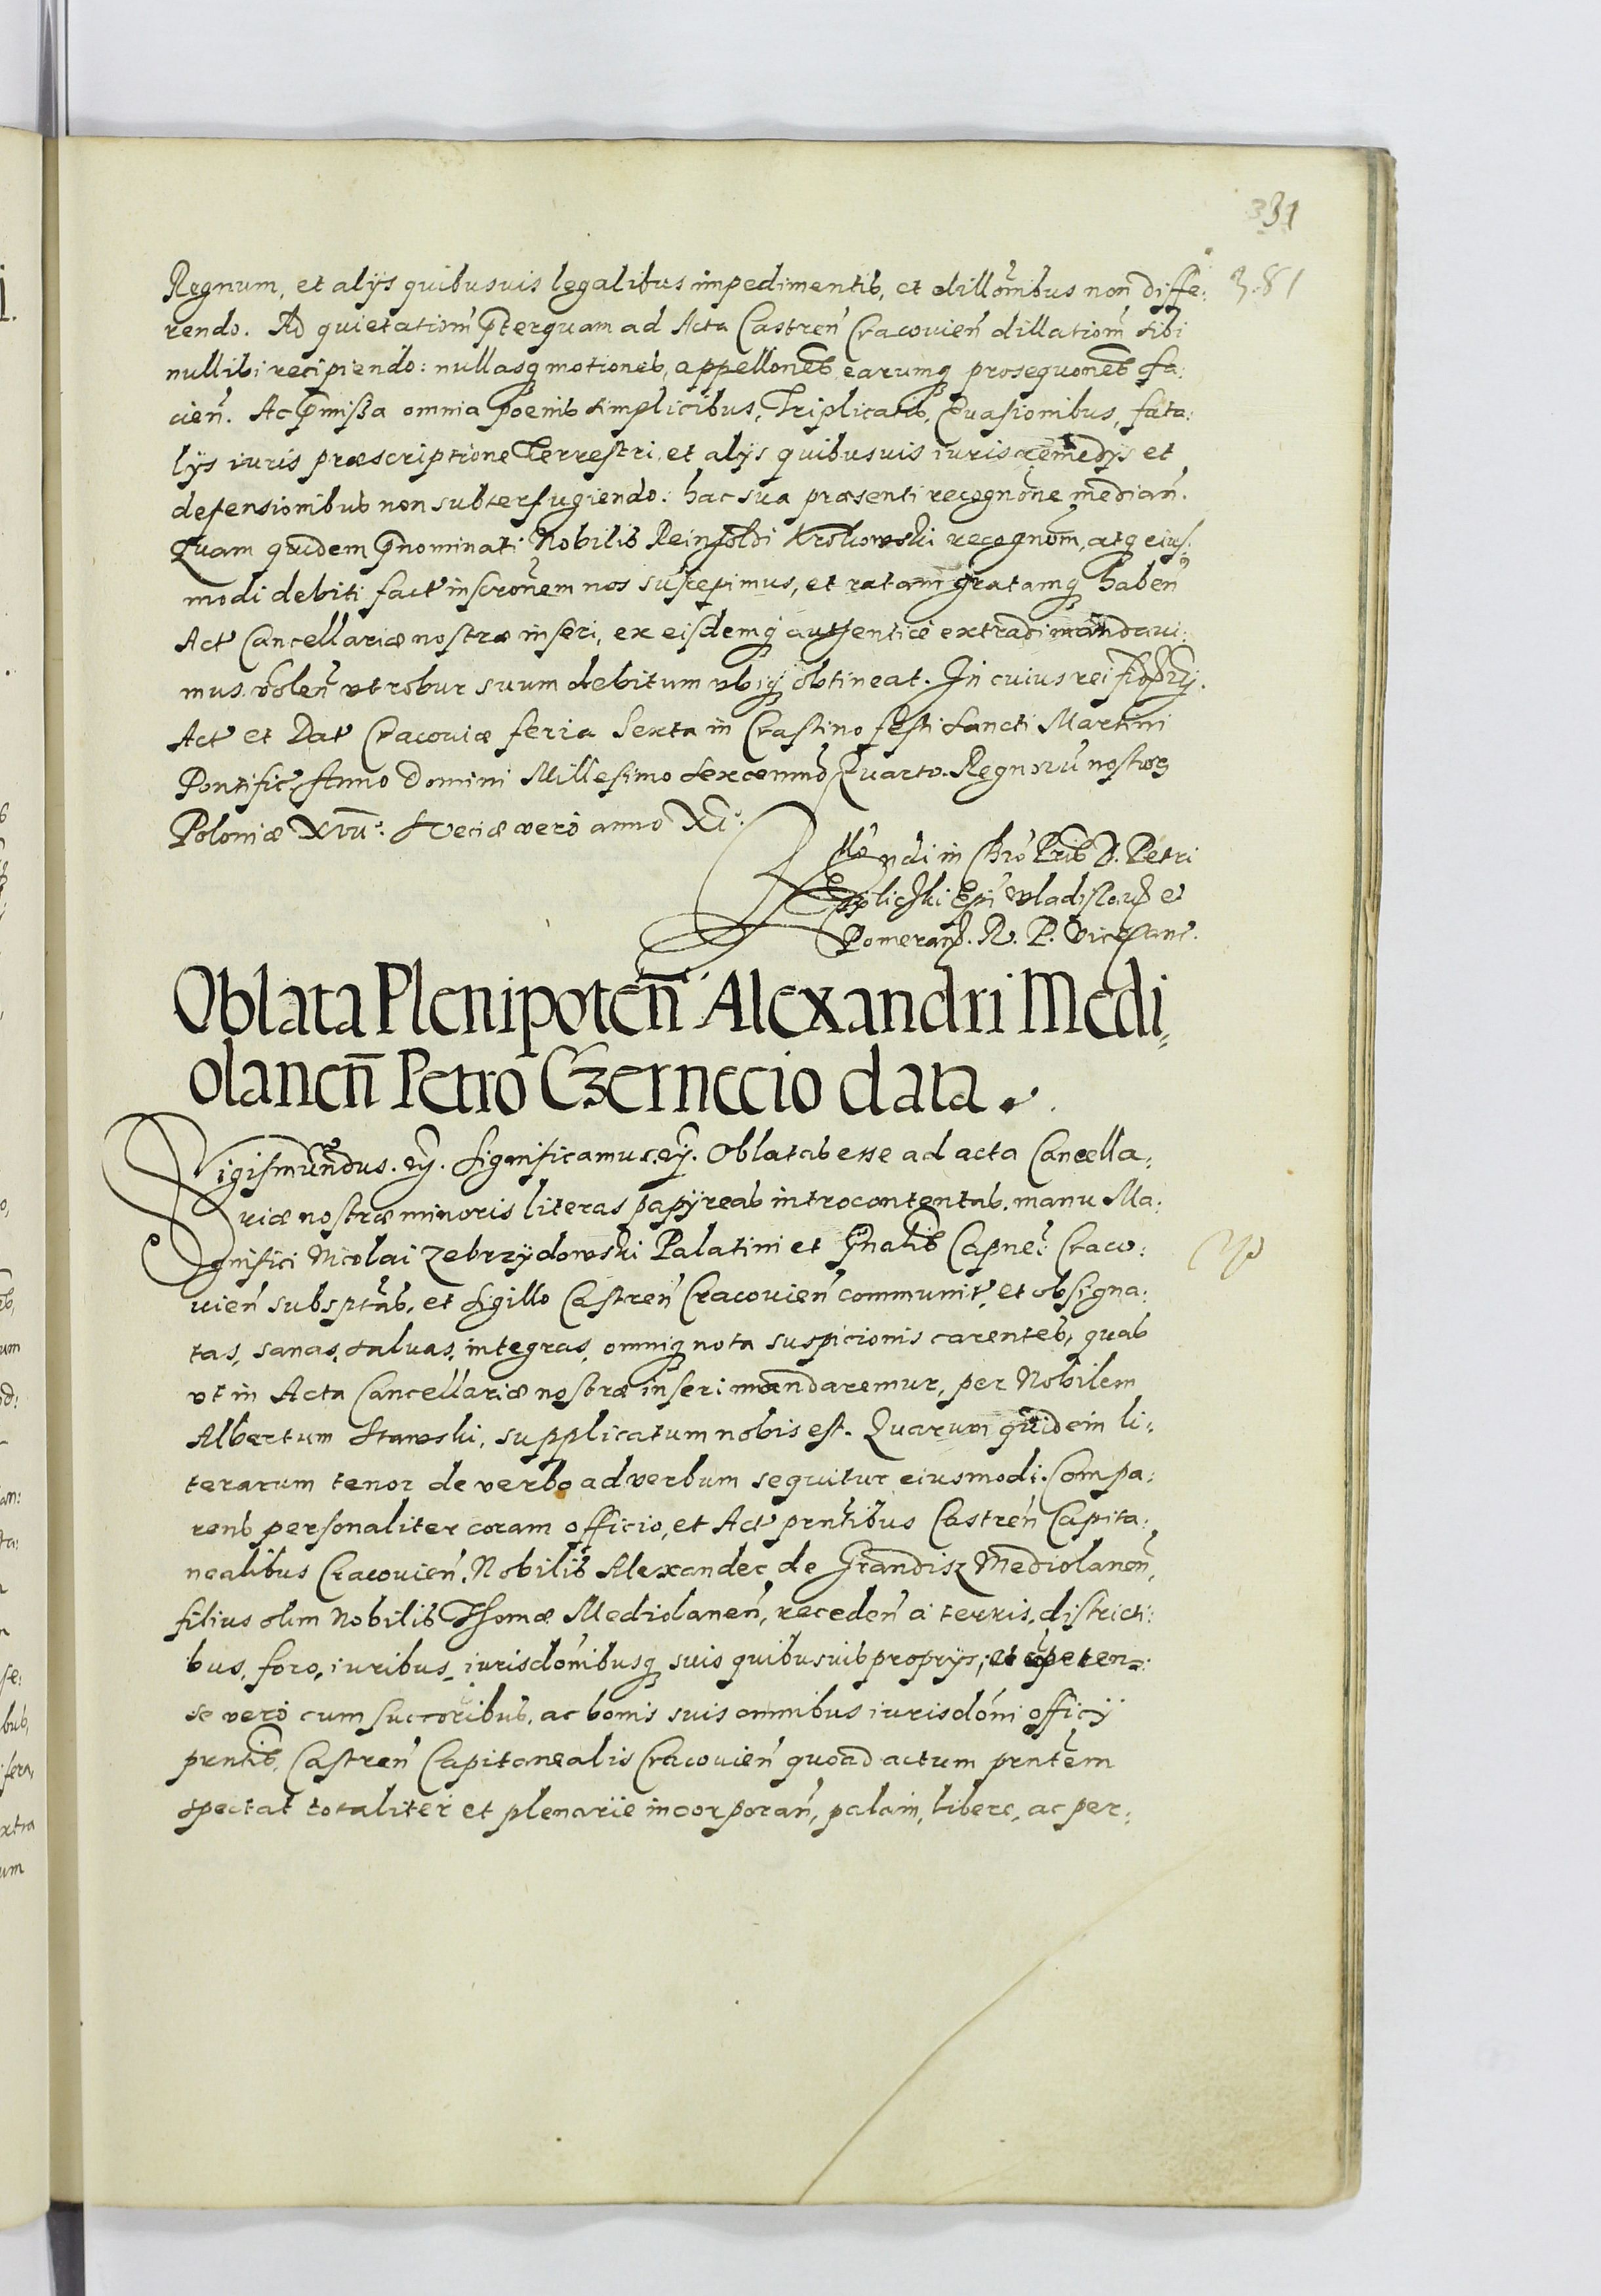 331
381
Regnum, et alÿs quibusuis legalibus impedimentis, et dillõnibus non diffe:
rendo. Ad quietationẽ pterquam ad Acta Castreñ Cracovieñ dillationẽ sibi
nullibi recipiendo: nullasq motiones, appellones earumq prosequones fa:
cieñ. Ac pmißa omnia poenis simplicibus, Triplicatis, Evasionibus, fata:
lÿs iuris præscriptione Terrestri, et alÿs quibusuis iuris remedÿs et
defensionibus non subterfugiendo: hac sua præsenti recognõne mediañ.
Quam quidem pnominati Nobilis Reinholdi Krokowski recognõm, atq eius:
modi debiti fact inscrõnem nos suscepimus, et ratam gratamq habeñ
Act Cancellariæ nostræ inseri, ex eisdemq autentice extradi mandaui:
mus. voleñ vt robur suum debitum vbiq obtineat. In cuius rei
Act et Dat Cracoviæ feria Sexta in Crastino festi Sancti Martini
Pontific Anno Domini Millesimo sexcenmo Quarto. Regnorũ nostrorꝫ
Poloniæ XVII. Sveciæ vero anno XI.
Rlaõ Rndi in Chro Pris D. Petri
Tÿlicki Epi Vladislavs et
Pomerans. R. P. Vicecanc.
Oblata Plenipoteñ Alexandri Medi
olaneñ Petro Czernecio data.
Sigismundus. ꝛc. Significamus. ꝛc. Oblatas esse ad acta Cancella:
riæ nostræ minoris literas papÿreas introcontentas. manu Ma:
gnifici Nicolai Zebrzÿdowski Palatini et Gnalis Capnei Craco:
vieñ subsptas, et sigillo Castreñ Cracovieñ communit, et obsigna:
tas, sanas, saluas, integras, omniq nota suspicionis carentes, quas
vt in Acta Cancellariæ nostræ inseri mandaremur, per Nobilem
Albertum Stawski, supplicatum nobis est. Quarum quidem li:
terarum tenor de verbo ad verbum sequitur eiusmodi. Compa:
rens personaliter coram officio, et Act prntibus Castreñ Capita:
nealibus Cracovieñ. Nobilis Alexander de Grandisz Mediolaneñ,
filius olim Nobilis Thomæ Mediolaneñ, recedeñ a terris, districti:
bus, foro, iuribus, iurisdõnibusq suis quibusuis proprÿs, et cõpeten:
se vero cum succoribus, ac bonis suis omnibus iurisdõni officÿ
prntis, Castreñ Capitanealis Cracovieñ quoad actum prntem
spectat totaliter et plenarie incorporañ, palam, libere, ac per: